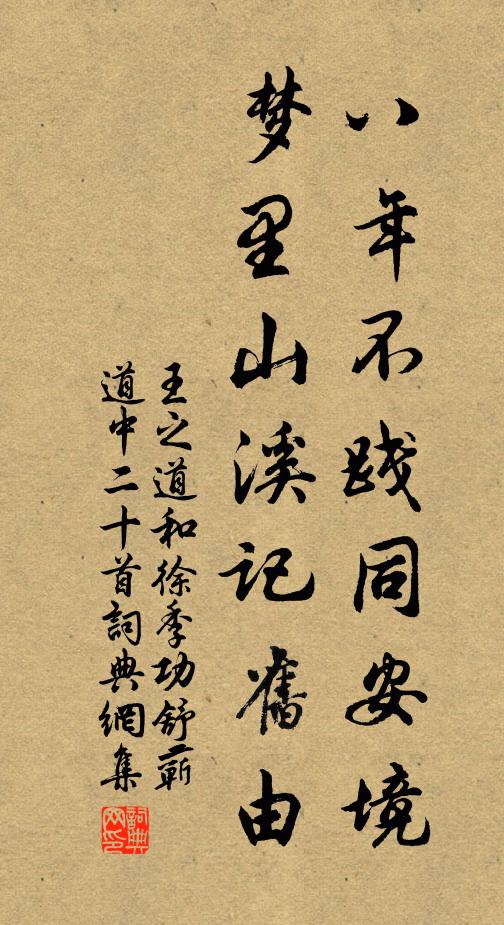 八年不践同安境
梦里山溪记舊由
王之道和徐季功舒蕲
道中二十首詞典網集
詞典网印